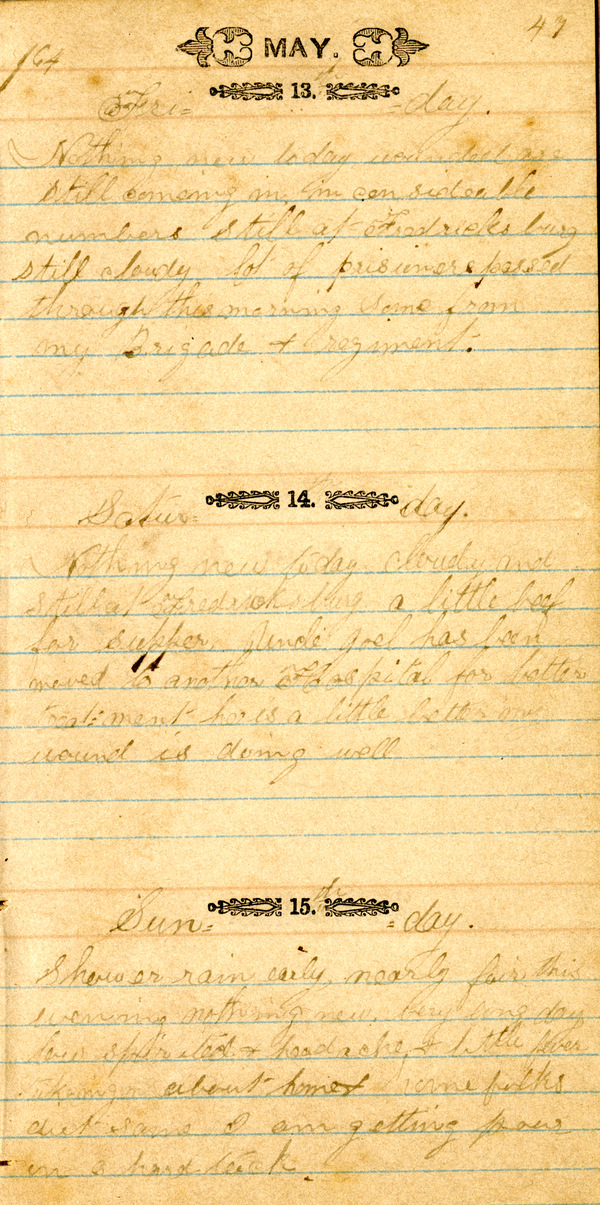 47
MAY.
/64
13.th
Fri= =day.
Nothing new today wounded are
still comeing in in consideable
numbers still at Fredricksburg
still cloudy lot of prisioners passed
through this morning some from
my Brigade & regiment.
14.
Satur= day.
Nothing new today cloudy and
still at Fredricksburg a little beef
for supper. Uncle Joel has been
moved to another Hospital for better
treatment he is a little better my
wound is doing well
15.th
Sun= =day.
Shower rain early, nearly fair this
evening nothing new. very long day
low spirited & headache, & little fever
about home & some folks
diet same I am getting poor
on 3 hard tack